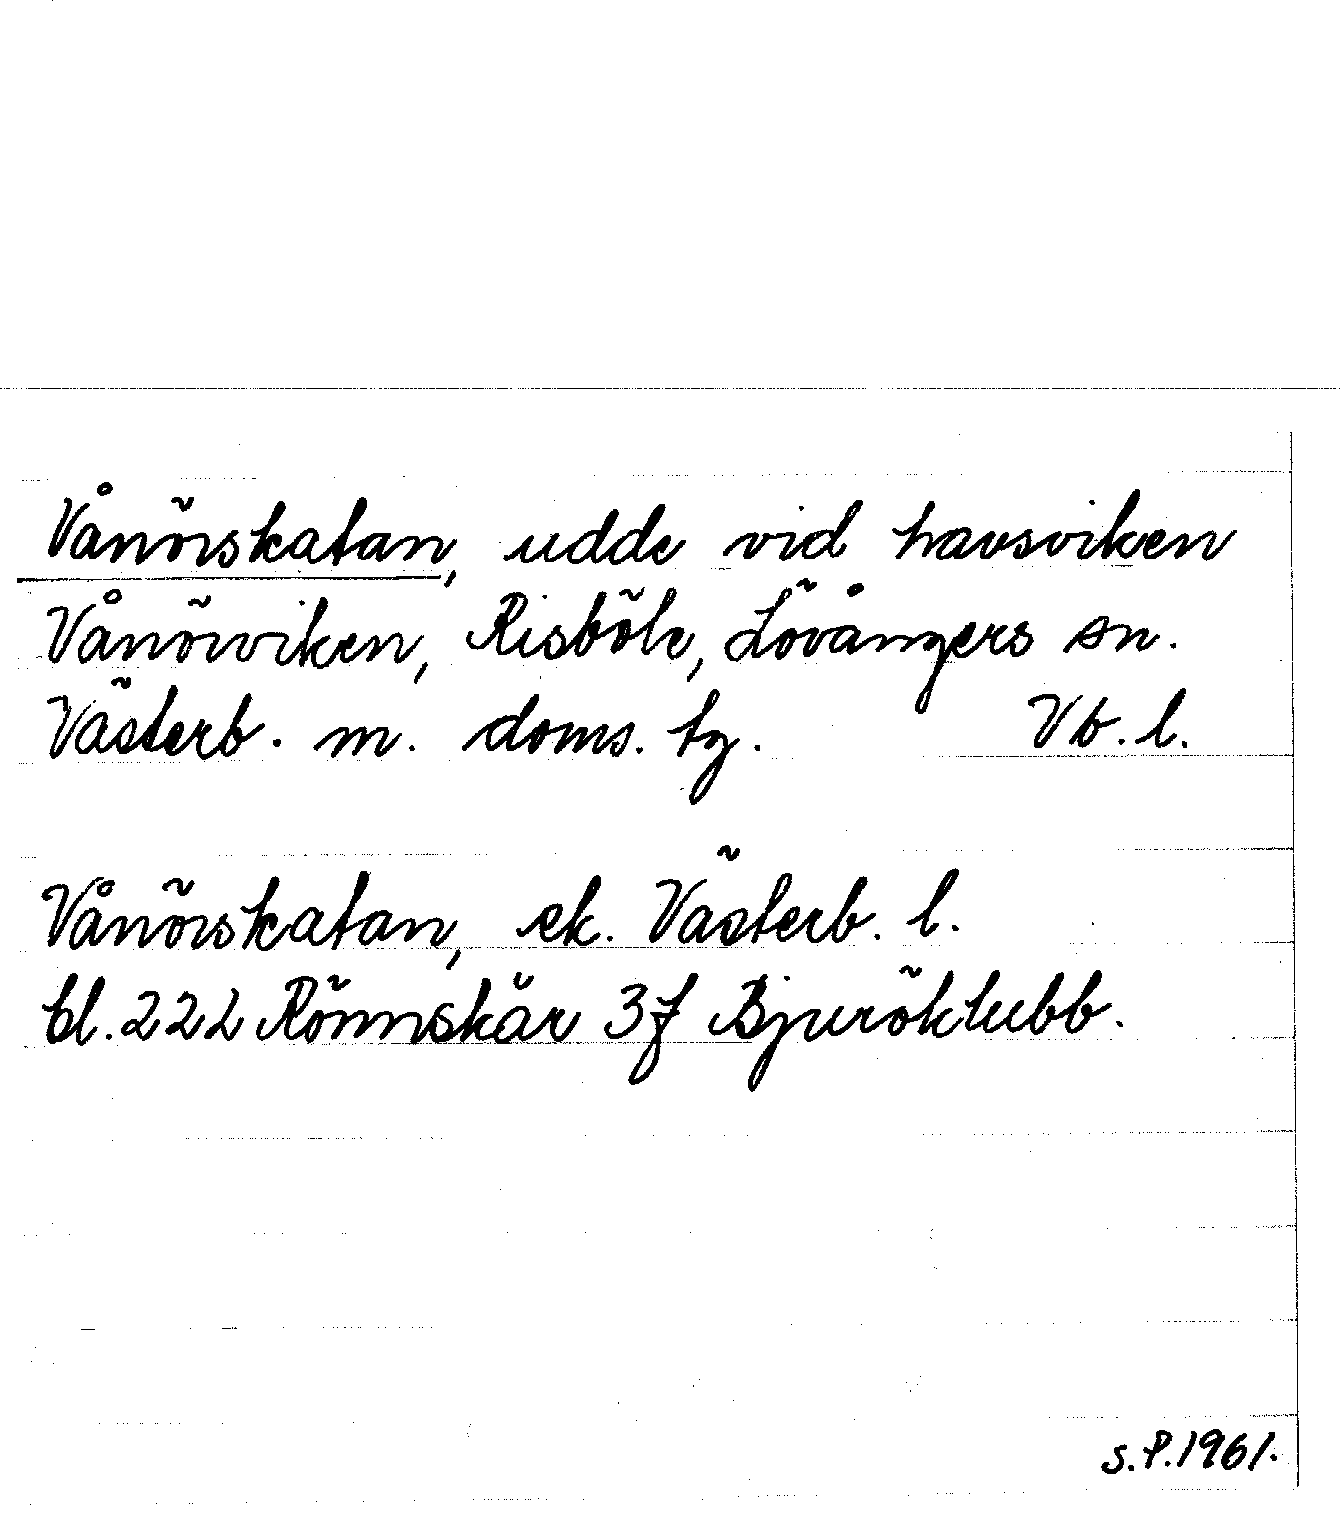 Vånörskatan, udde vid havsviken
Vånörviken, Risböle, Lövångers sn.
Västerb. m. doms. tg. Vb. l.
Vånörskatan, ek. Västerb. l.
bl. 222 Rönnskär 3f Bjuröklubb.
S.P.1961.